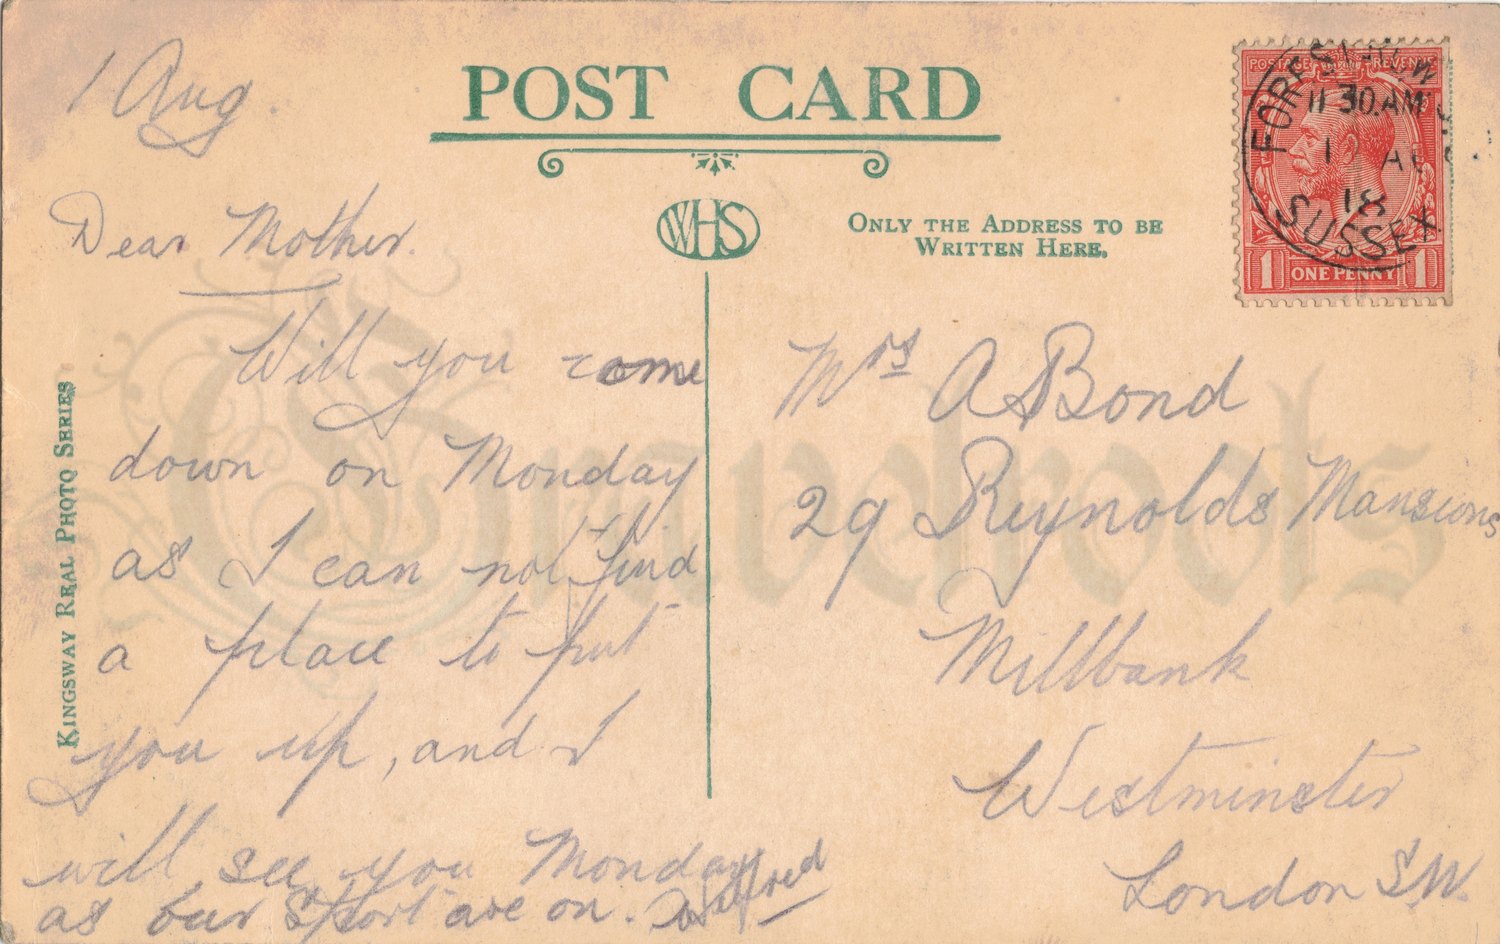 POST CARD
WHS
ONLY THE ADDRESS TO BE
WRITTEN HERE.
KINGSWAY REAL PHOTO SERIES
POSTAGE REVENUE
1 ONE PENNY 1
FOREST ROW
11 30.AM
1 AU
18
SUSSEX
1 Aug.
Dear Mother.
Will you come
down on Monday
as I can not find
a place to put
you up, and I
will see you Monday
as our Sport are on.
Mrs A Bond
29 Reynolds Mansions
Millbank
Westminster
London S.W.
Travelroots